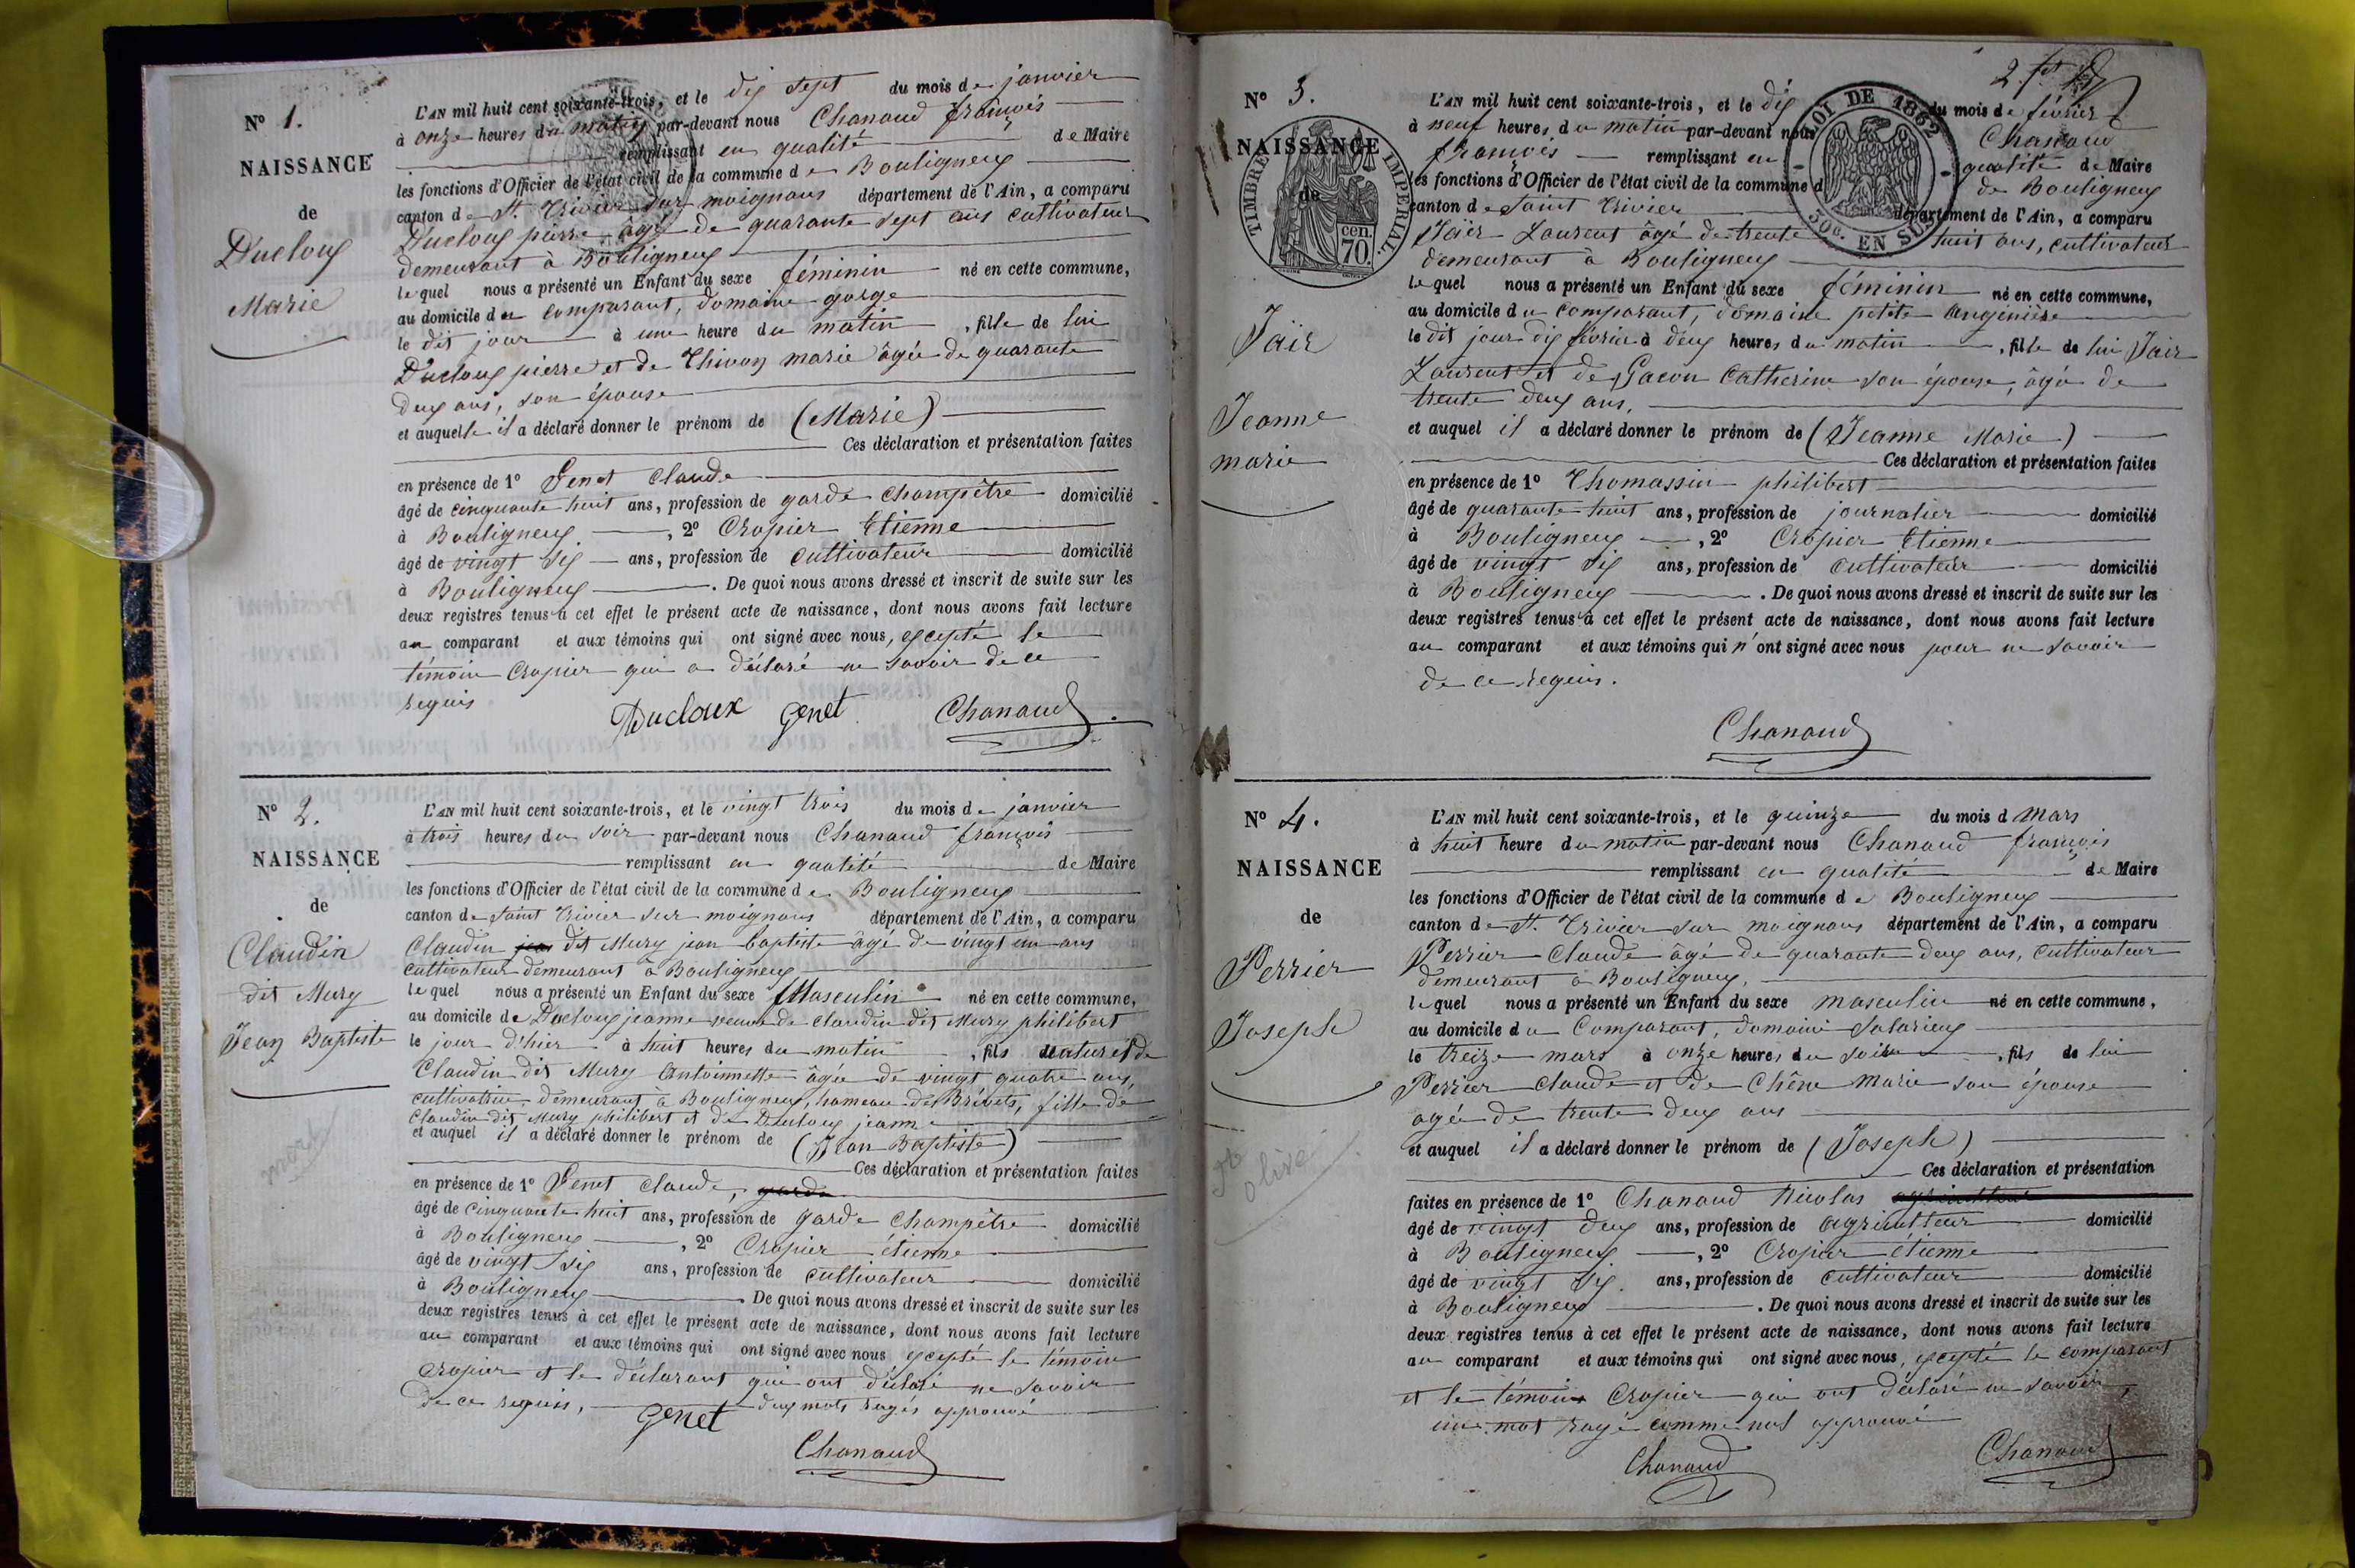 N° 1.
NAISSANCE
de
Ducloux
Marie
L'AN mil huit cent soixante-trois, et le dix sept du mois de janvier
à onze heures du matin par-devant nous Chanaud françois
remplissant en qualité de Maire
les fonctions d'Officier de l'état civil de la commune de Bouligneux
canton de St. Trivier sur moignans département de l'Ain, a comparu
Ducloux pierre âgé de quarante sept ans cultivateur
demeurant à Bouligneux
lequel nous a présenté un Enfant du sexe féminin né en cette commune,
au domicile du comparant, domaine gorge
le dit jour à une heure du matin, fille de lui
Ducloux pierre et de Thivon marie âgée de quarante
deux ans, son épouse
et auquelle il a déclaré donner le prénom de (Marie)
Ces déclaration et présentation faites
en présence de 1° Genet Claude
âgé de cinquante huit ans, profession de garde Champêtre domicilié
à Bouligneux, 2° Cropier Etienne
âgé de vingt six ans, profession de cultivateur domicilié
à Bouligneux. De quoi nous avons dressé et inscrit de suite sur les
deux registres tenus à cet effet le présent acte de naissance, dont nous avons fait lecture
au comparant et aux témoins qui ont signé avec nous, excepté le
témoin Cropier qui a déclaré ne savoir de ce
requis
Ducloux Genet Chanaud
N° 2.
NAISSANCE
de
Claudin
dit Mury
Jean Baptiste
mort
L'AN mil huit cent soixante-trois, et le vingt trois du mois de janvier
à trois heures du soir par-devant nous Chanaud françois
remplissant en qualité de Maire
les fonctions d'Officier de l'état civil de la commune de Bouligneux
canton de Saint Trivier sur moignans département de l'Ain, a comparu
Claudin jean dit Mury jean baptiste âgé de vingt un ans
cultivateur demeurant à Bouligneux
lequel nous a présenté un Enfant du sexe Masculin né en cette commune,
au domicile de Ducloux jeanne veuve de claudin dit Mury philibert
le jour d'hier à huit heures du matin, fils naturel de
Claudin dit Mury Antoinnette âgée de vingt quatre ans,
cultivatrice demeurant à Bouligneux, hameau des Brévets, fille de
Claudin dit Mury philibert et de Ducloux jeanne
et auquel il a déclaré donner le prénom de (Jean Baptiste)
Ces déclaration et présentation faites
en présence de 1° Genet Claude, garde
âgé de cinquante huit ans, profession de garde Champêtre domicilié
à Bouligneux, 2° Cropier étienne
âgé de vingt six ans, profession de cultivateur domicilié
à Bouligneux. De quoi nous avons dressé et inscrit de suite sur les
deux registres tenus à cet effet le présent acte de naissance, dont nous avons fait lecture
au comparant et aux témoins qui ont signé avec nous excepté le témoin
Cropier et le déclarant qui ont déclaré ne savoir
de ce requis, deux mots rayés approuvé
Genet
Chanaud
N° 3.
NAISSANCE
de
Jaïr
Jeanne
marie
TIMBRE IMPERIAL.
cen.
70.
LOI DE 1862
50c. EN SUS
L'AN mil huit cent soixante-trois, et le dix du mois de février
à neuf heures du matin par-devant nous Chanaud
françois remplissant en qualité de Maire
les fonctions d'Officier de l'état civil de la commune de Bouligneux
canton de Saint Trivier département de l'Ain, a comparu
Jaïr Laurent âgé de trente huit ans, cultivateur
demeurant à Bouligneux
lequel nous a présenté un Enfant du sexe féminin né en cette commune,
au domicile du comparant, domaine petite Angenière
le dit jour dix février à deux heures du matin, fille de lui Jaïr
Laurent et de Gacon Catherine son épouse, âgée de
trente deux ans,
et auquel il a déclaré donner le prénom de (Jeanne Marie)
Ces déclaration et présentation faites
en présence de 1° Thomassin philibert
âgé de quarante huit ans, profession de journalier domicilié
à Bouligneux, 2° Cropier Etienne
âgé de vingt six ans, profession de cultivateur domicilié
à Bouligneux. De quoi nous avons dressé et inscrit de suite sur les
deux registres tenus à cet effet le présent acte de naissance, dont nous avons fait lecture
au comparant et aux témoins qui n'ont signé avec nous pour ne savoir
de ce requis.
Chanaud
N° 4.
NAISSANCE
de
Perrier
Joseph
L'AN mil huit cent soixante-trois, et le quinze du mois d Mars
à huit heure du matin par-devant nous Chanaud françois
remplissant en qualité de Maire
les fonctions d'Officier de l'état civil de la commune de Bouligneux
canton de St. Trivier sur moignans département de l'Ain, a comparu
Perrier Claude âgé de quarante deux ans, cultivateur
demeurant à Bouligneux,
lequel nous a présenté un Enfant du sexe masculin né en cette commune,
au domicile du Comparant, domaine Salarieux
le treize mars à onze heures du soir, fils de lui
Perrier Claude et de Chêne Marie son épouse
agée de trente deux ans
et auquel il a déclaré donner le prénom de (Joseph)
Ces déclaration et présentation
faites en présence de 1° Chanaud Nicolas agriculteur
âgé de vingt deux ans, profession de agriculteur domicilié
à Bouligneux, 2° Cropier étienne
âgé de vingt six ans, profession de cultivateur domicilié
à Bouligneux. De quoi nous avons dressé et inscrit de suite sur les
deux registres tenus à cet effet le présent acte de naissance, dont nous avons fait lecture
au comparant et aux témoins qui ont signé avec nous, excepté le comparant
et le témoin Cropier qui ont déclaré ne savoir,
un mot rayé comme nul approuvé
Chanaud Chanaud